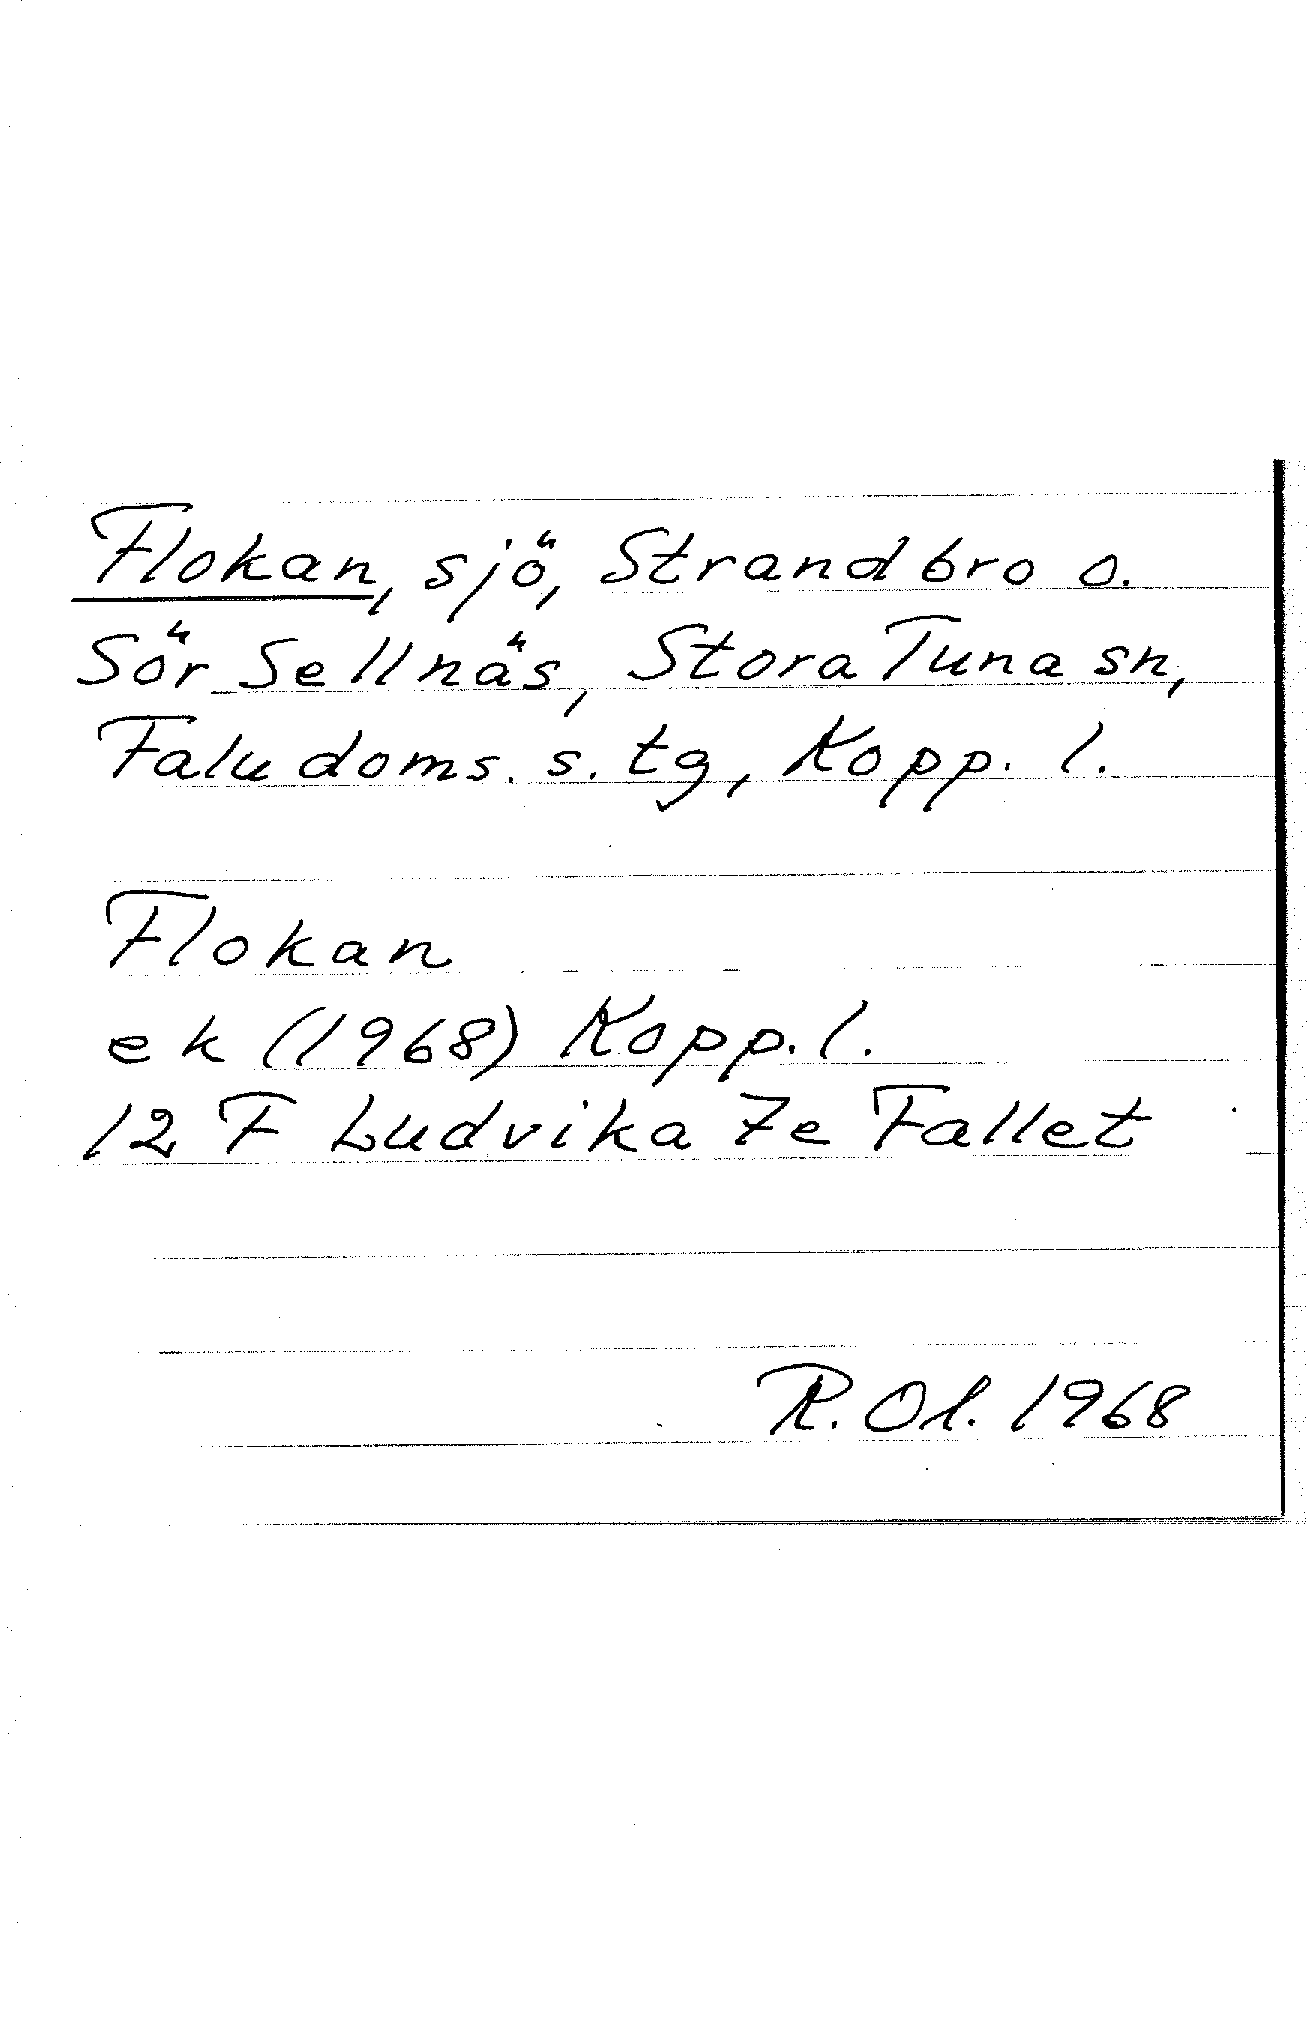 Flokan, sjö, Strandbro o.
Sör Sellnäs, Stora Tuna sn,
Falu doms. s. tg, Kopp. l.
Flokan
ek (1968) Kopp. l.
12 F Ludvika 7e Fallet
R. Ol. 1968